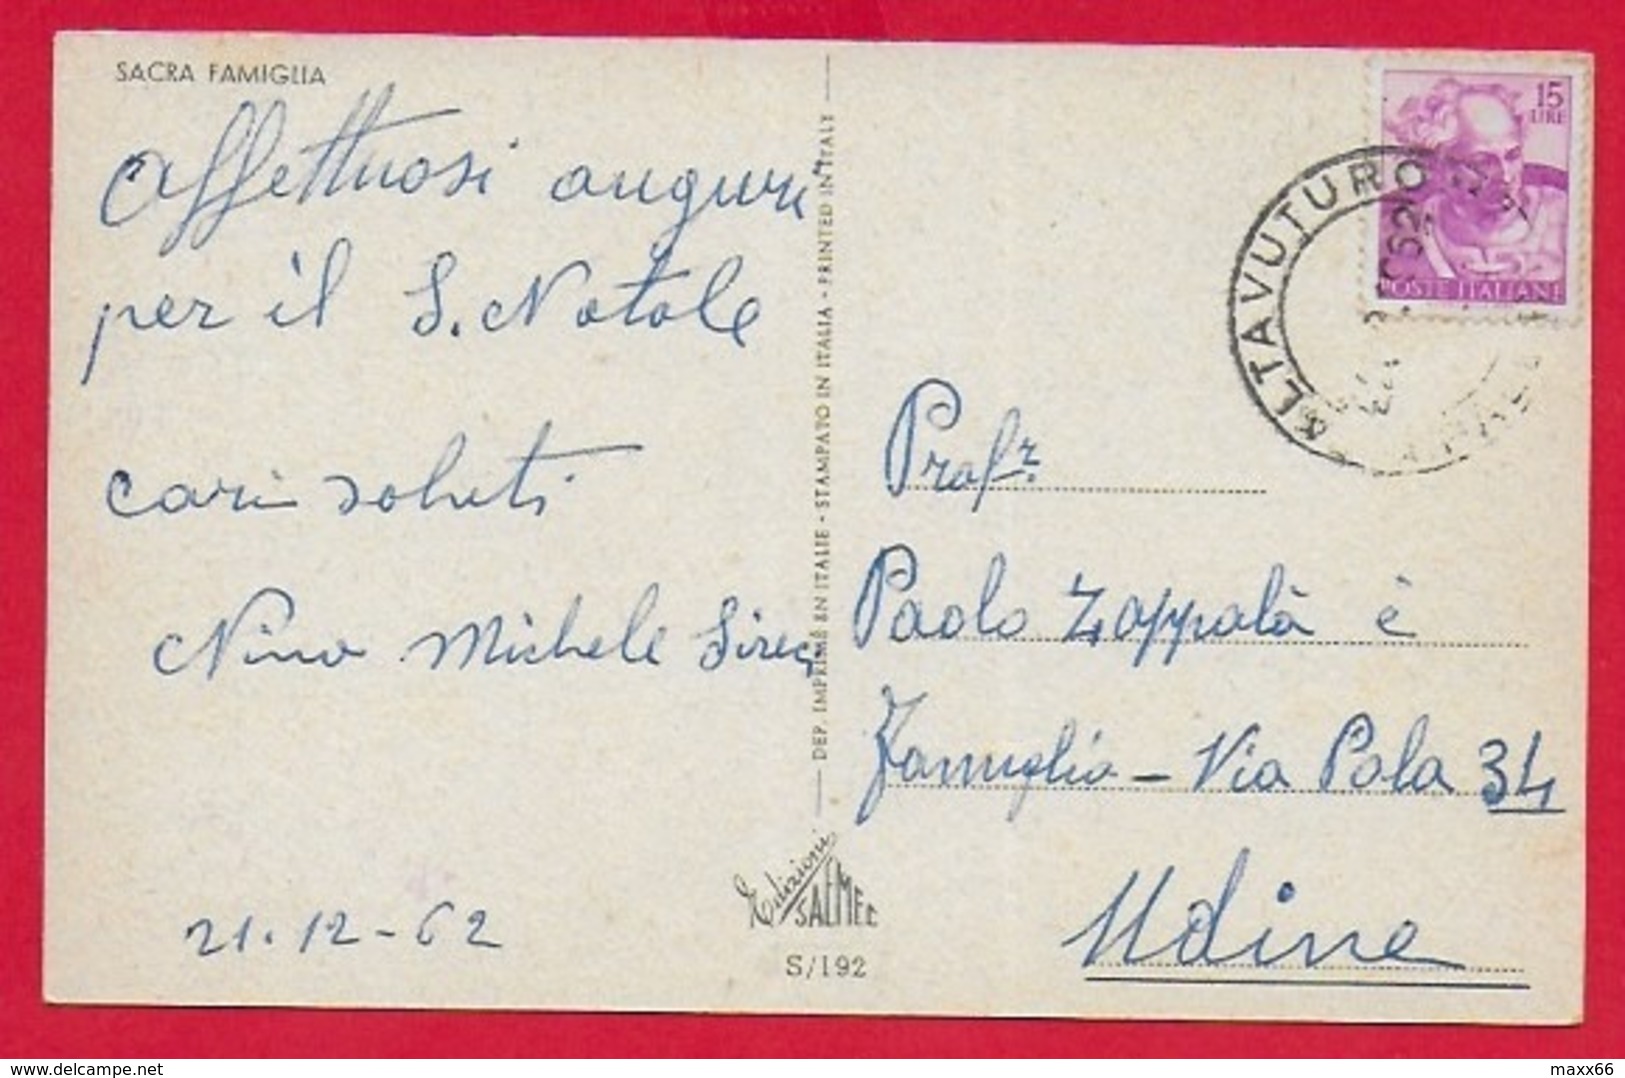 SACRA FAMIGLIA
Affettuosi auguri
per il S. Natale
cari saluti
Nino Michele
21.12-62
DEP. IMPRIMÉ EN ITALIE - STAMPATO IN ITALIA - PRINTED IN ITALY
Edizioni
SAEMEC
S/192
15
LIRE
POSTE ITALIANE
ALTAVUTURO
62
Profr
Paolo Zappalà è
Famiglia - Via Pola 34
Udine
delcampe.net
maxx66